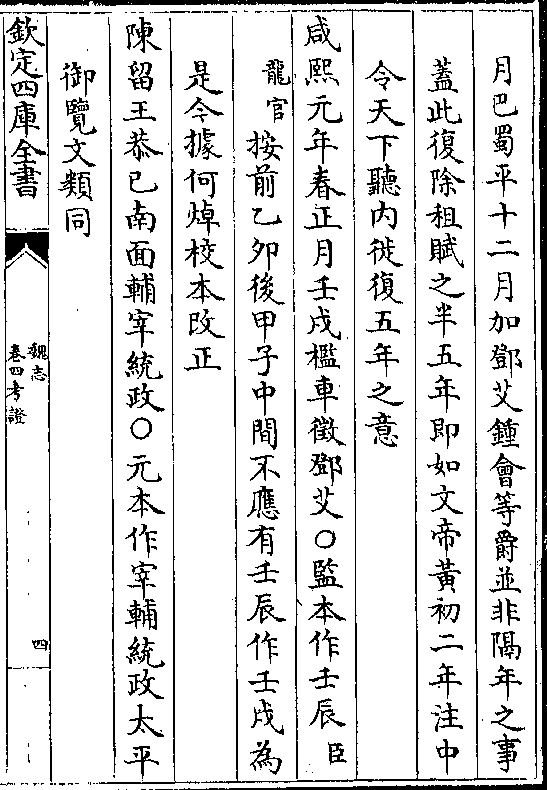 月巴蜀平十二月加鄧艾鍾會等爵並非隔年之事
蓋此復除租賦之半五年即如文帝黃初二年注中
令天下聽內徙復五年之意
咸熙元年春正月壬戌檻車徵鄧艾○監本作壬辰臣
龍官按前乙夘後甲子中間不應有壬辰作壬戌為
是今據何焯校本改正
陳留王恭已南面輔宰統政○元本作宰輔統政太平
御覽文類同
欽定四庫全書
魏志
卷四考證
四